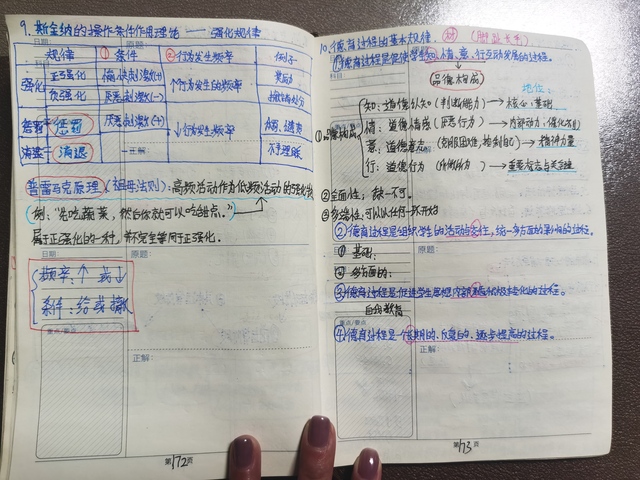 9. 斯金纳的操作条件作用理论 —— 强化规律
日期: 原题:
规律 ①条件 ②行为发生频率 例子
强化 正强化 愉快刺激(+) ↑行为发生的频率 奖励
负强化 厌恶刺激(-) 撤销处分
惩罚→惩罚 厌恶刺激(+) ↓行为发生频率
消退→消退 不予理睬
正解:
普雷马克原理(祖母法则):高频活动作为低频活动的强化物
例:“先吃蔬菜,然后你就可以吃甜点。”
属于正强化的一种,并不完全等同于正强化。
日期: 原题:
频率:↑ 或 ↓
条件:给或撤
重点/要点
正解:
第172页
10. 德育过程的基本规律
①德育过程是促使学生知、情、意、行互动发展的过程。
品德构成 地位:
知:道德认知(判断能力)→核心、基础
情:道德情感 →内部动力、催化剂
意:道德意志 →精神力量
行:道德行为 →重要标志与关键
②全面性:缺一不可。
③多端性:可以从任何一环开始
②德育过程是组织学生的活动与交往,统一多方面教育影响的过程。
①基础:
②多方面的:
③德育过程是促进学生思想内部矛盾积极转化的过程。
自我教育
④德育过程是一个长期的、反复的、逐步提高的过程。
日期: 原题:
重点/要点
正解:
第173页